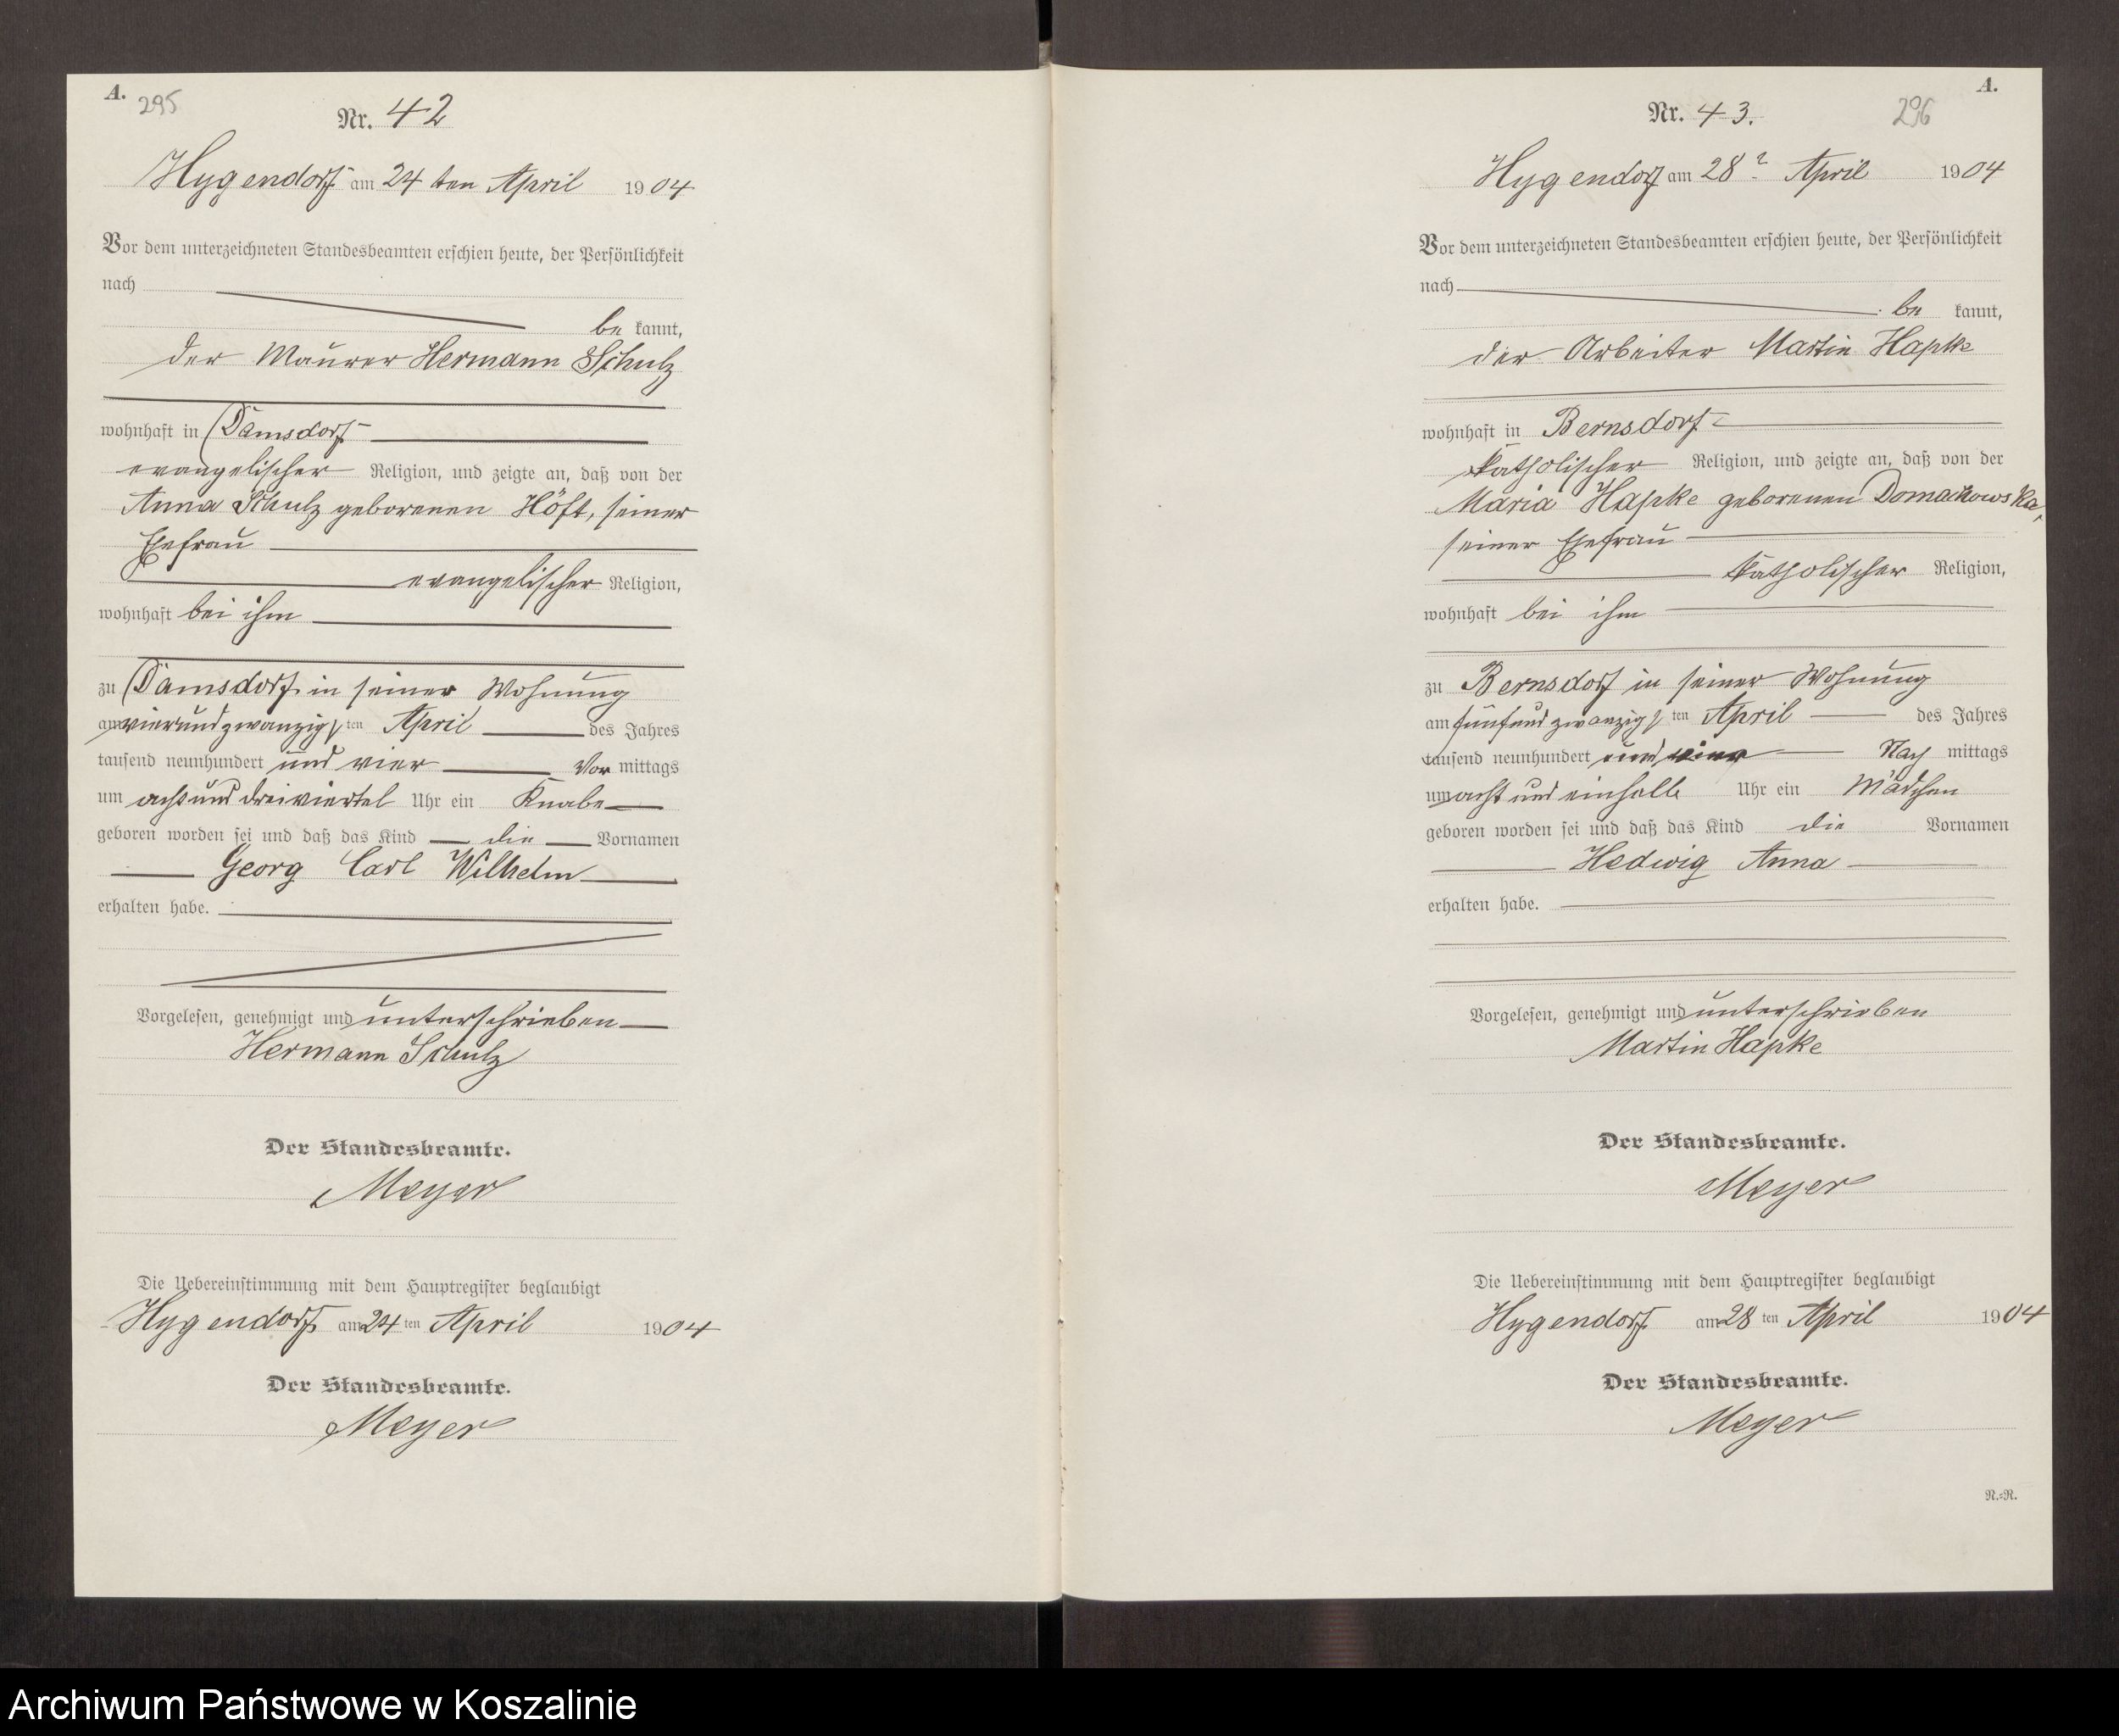 A.
295
Nr. 42
Hygendorf am 24 ten April 1904
Vor dem unterzeichneten Standesbeamten erschien heute, der Persönlichkeit
nach
be kannt,
der Maurer Hermann Schulz
wohnhaft in Damsdorf
evangelischer Religion, und zeigte an, daß von der
Anna Schulz geborenen Höft, seiner
Ehefrau
evangelischer Religion,
wohnhaft bei ihm
zu Damsdorf in seiner Wohnung
am vierundzwanzigs ten April des Jahres
tausend neunhundert und vier Vor mittags
um acht und dreiviertel Uhr ein Knabe
geboren worden sei und daß das Kind die Vornamen
Georg Carl Wilhelm
erhalten habe.
Vorgelesen, genehmigt und unterschrieben
Hermann Schulz
Der Standesbeamte.
Meyer
Die Uebereinstimmung mit dem Hauptregister beglaubigt
Hygendorf am 24 ten April 1904
Der Standesbeamte.
Meyer
A.
Nr. 43.
296
Hygendorf am 28 April 1904
Vor dem unterzeichneten Standesbeamten erschien heute, der Persönlichkeit
nach
be kannt,
der Arbeiter Martin Hapke
wohnhaft in Bernsdorf
katholischer Religion, und zeigte an, daß von der
Maria Hapke geborenen Domachowska,
seiner Ehefrau
katholischer Religion,
wohnhaft bei ihm
zu Bernsdorf in seiner Wohnung
am fünfundzwanzigs ten April des Jahres
tausend neunhundert und vier Nach mittags
um acht und einhalb Uhr ein Mädchen
geboren worden sei und daß das Kind die Vornamen
Hedwig Anna
erhalten habe.
Vorgelesen, genehmigt und unterschrieben
Martin Hapke
Der Standesbeamte.
Meyer
Die Uebereinstimmung mit dem Hauptregister beglaubigt
Hygendorf am 28 ten April 1904
Der Standesbeamte.
Meyer
N.=N.
Archiwum Państwowe w Koszalinie